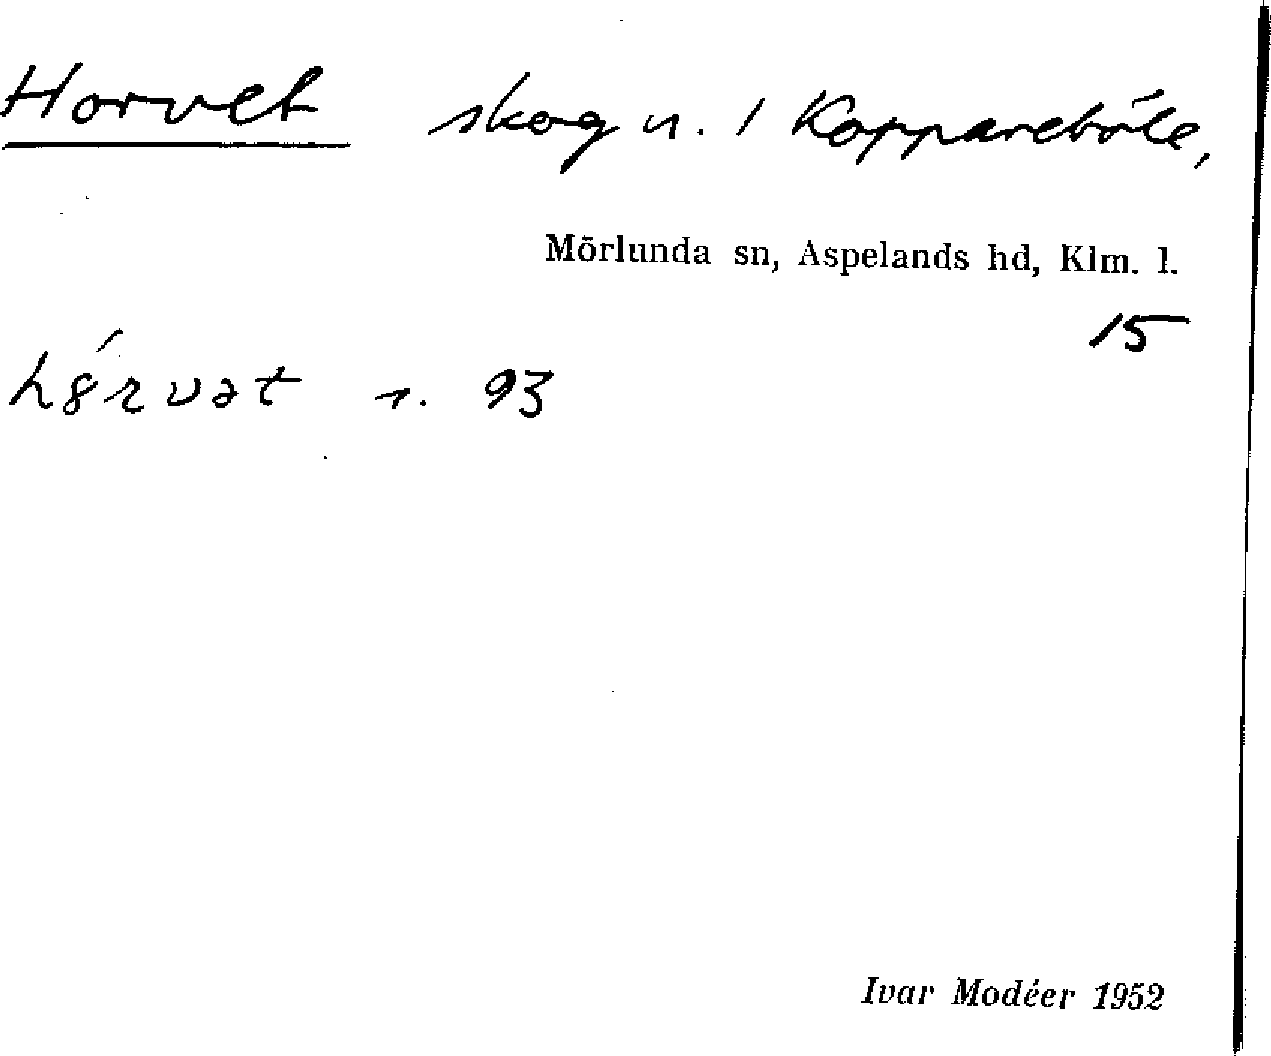 Horvet skog u. 1 Kopparebo̊le,
Mörlunda sn, Aspelands hd, Klm. l.
15
r. 93
Ivar Modéer 1952